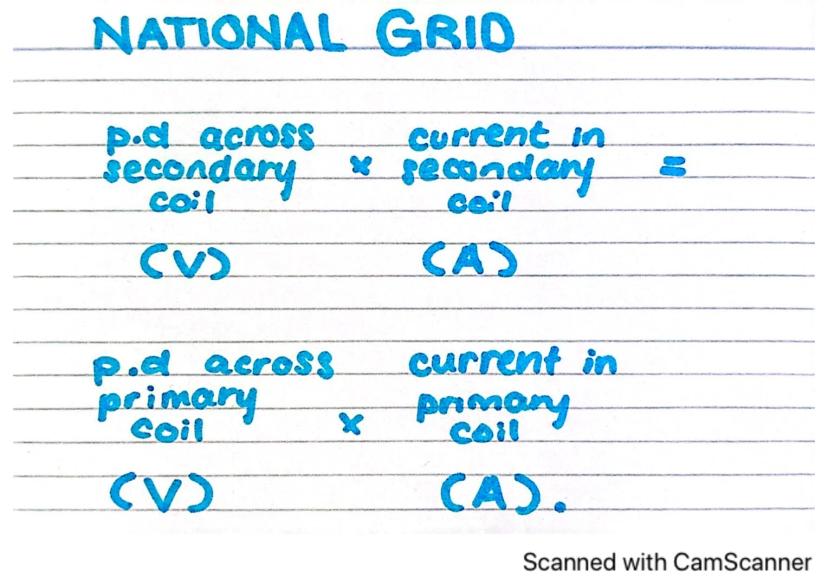 NATIONAL GRID
p.d across current in
secondary × secondary =
coil coil
(V) (A)
p.d across current in
primary × primary
coil coil
(V) (A).
Scanned with CamScanner